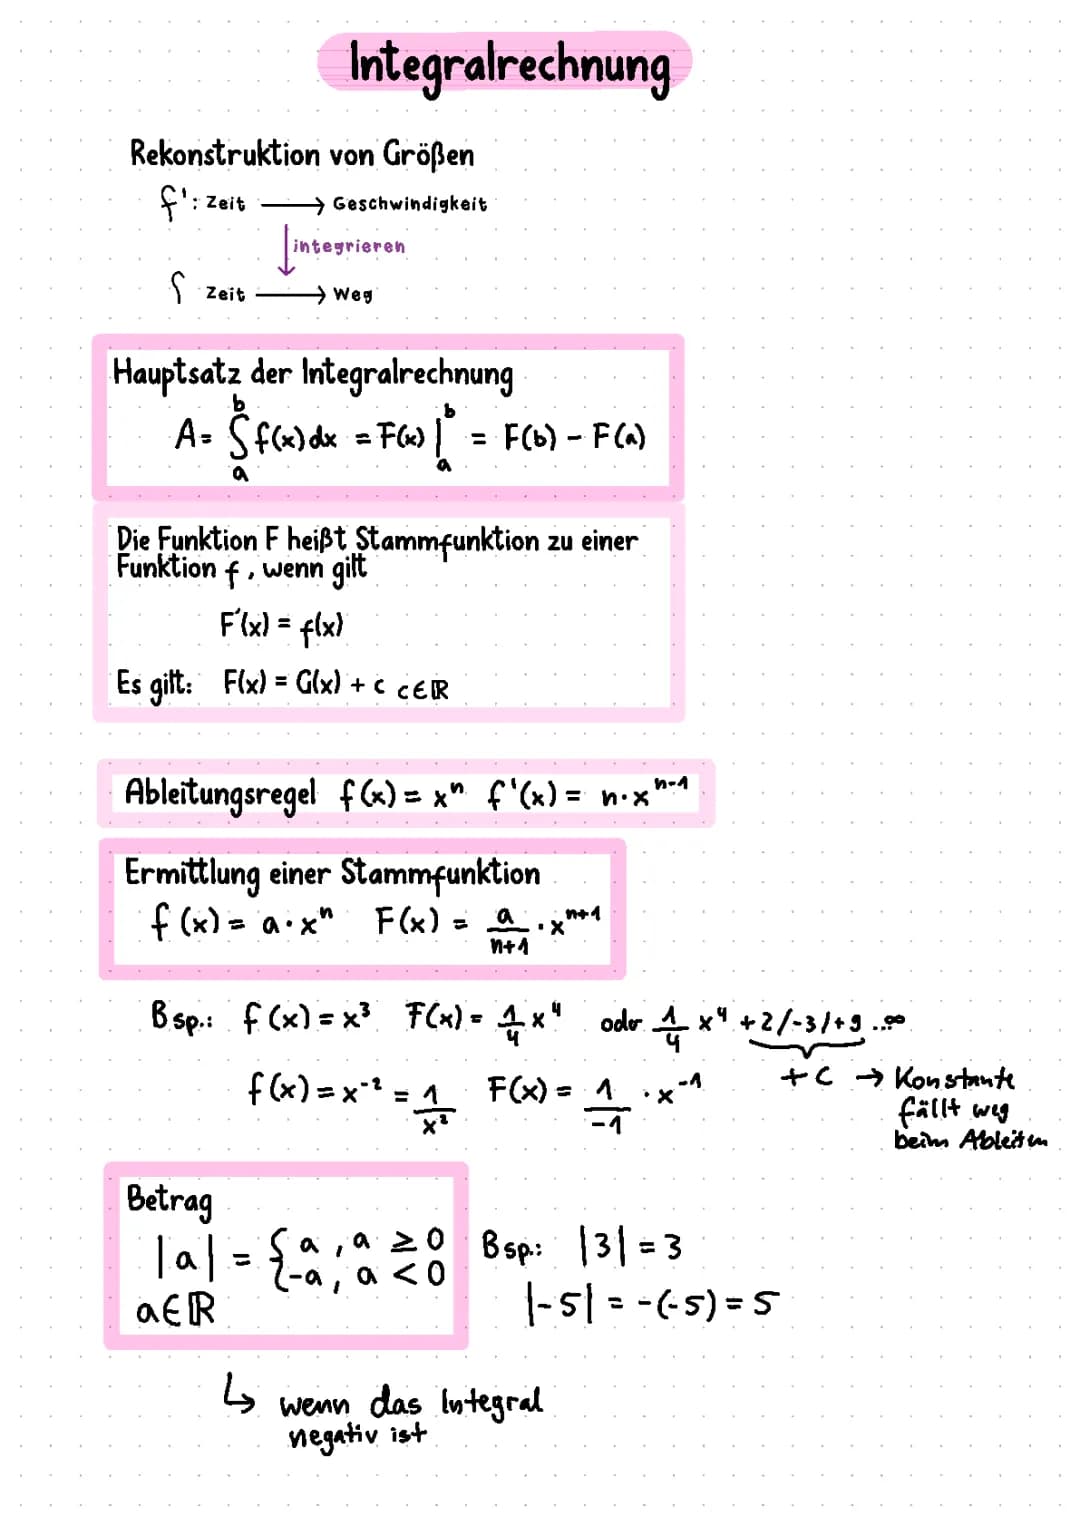 Integralrechnung
Rekonstruktion von Größen
f': Zeit → Geschwindigkeit
↓ integrieren
f Zeit → Weg
Hauptsatz der Integralrechnung
A = ∫ₐᵇ f(x) dx = F(x) |ₐᵇ = F(b) - F(a)
Die Funktion F heißt Stammfunktion zu einer
Funktion f, wenn gilt
F'(x) = f(x)
Es gilt: F(x) = G(x) + c c∈ℝ
Ableitungsregel f(x) = xⁿ f'(x) = n·xⁿ⁻¹
Ermittlung einer Stammfunktion
f(x) = a·xⁿ F(x) = a/(n+1) · xⁿ⁺¹
Bsp.: f(x) = x³ F(x) = 1/4 x⁴ oder 1/4 x⁴ +2/-3/+9 ...∞
f(x) = x⁻² = 1/x² F(x) = 1/-1 · x⁻¹ + C → Konstante
fällt weg
beim Ableiten
Betrag
|a| = { a, a ≥ 0
-a, a < 0
a∈ℝ
Bsp.: |3| = 3
|-5| = -(-5) = 5
↳ wenn das Integral
negativ ist